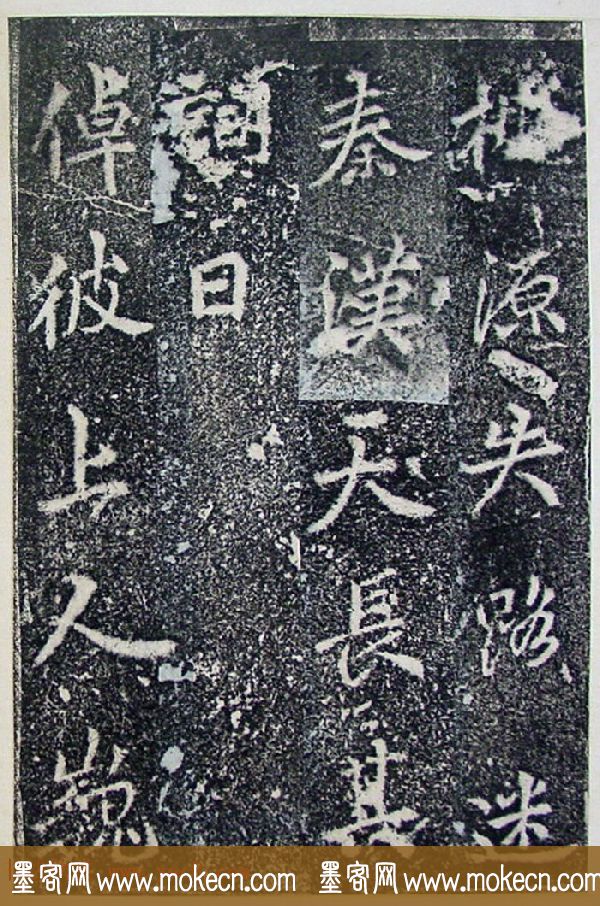 桃源失路迷
秦漢天長
詞曰
倬彼上人
墨客网 www.mokecn.com 墨客网 www.mokecn.com